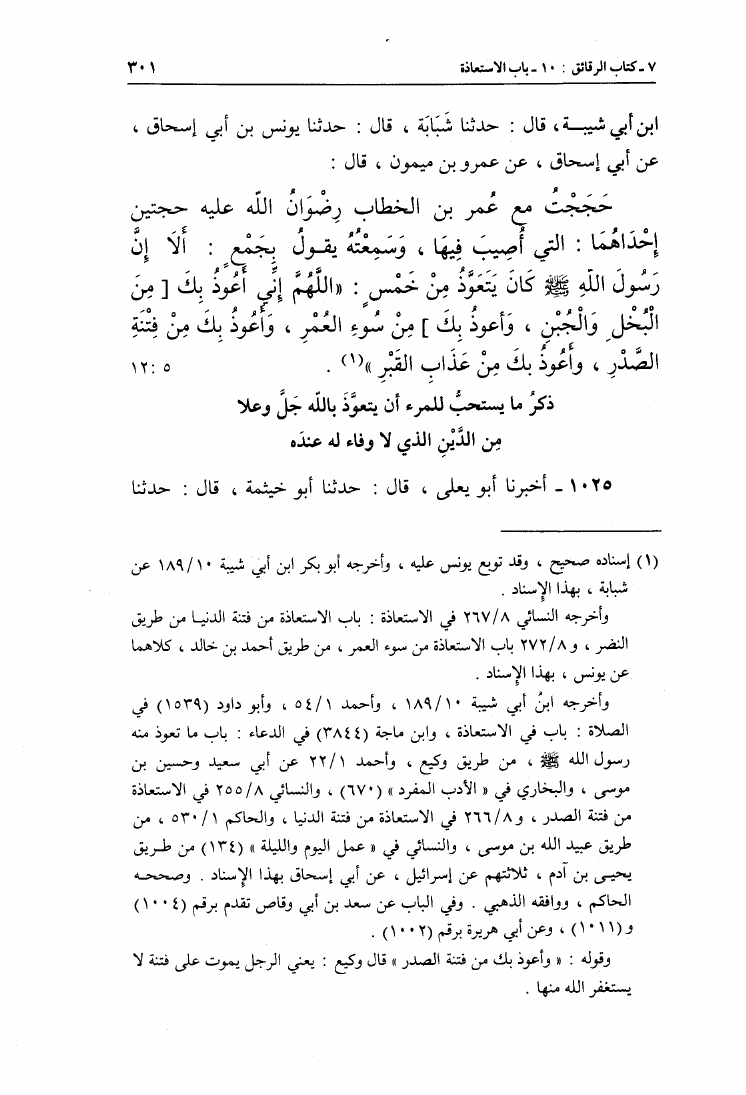 ٧ ـ كتاب الرقائق : ١٠ ـ باب الاستعاذة ٣٠١
ابن أبي شيبـــة، قال : حدثنا شَبَابَة ، قال : حدثنا يونس بن أبي إسحاق ،
عن أبي إسحاق ، عن عمرو بن ميمون ، قال :
حَجَجْتُ مع عُمر بن الخطاب رِضْوَانُ اللّه عليه حجتين
إِحْدَاهُمَا : التي أُصِيبَ فِيهَا ، وَسَمِعْتُهُ يقـولُ بِجَمْعٍ : أَلَا إِنَّ
رَسُولَ اللّهِ ﷺ كَانَ يَتَعَوَّذُ مِنْ خَمْسٍ : «اللَّهُمَّ إِنِّي أَعُوذُ بِكَ [ مِنَ
الْبُخْلِ وَالْجُبْنِ ، وَأعوذُ بِكَ ] مِنْ سُوءِ العُمْرِ ، وَأَعُوذُ بِكَ مِنْ فِتْنَةِ
الصَّدْرِ ، وأَعُوذُ بِكَ مِنْ عَذَابِ القَبْرِ »(١) . ٥ :١٢
ذكرُ ما يستحبُّ للمرء أن يتعوَّذَ باللّه جَلَّ وعلا
مِن الدَّيْنِ الذي لا وفاء له عندَه
١٠٢٥ ـ أخبرنا أبو يعلى ، قال : حدثنا أبو خيثمة ، قال : حدثنا
(١) إسناده صحيح ، وقد توبع يونس عليه ، وأخرجه أبو بكر ابن أبي شيبة ١٨٩/١٠ عن
شبابة ، بهذا الإسناد .
وأخرجه النسائي ٢٦٧/٨ في الاستعاذة : باب الاستعاذة من فتنة الدنيـا من طريق
النضر ، و٢٧٢/٨ باب الاستعاذة من سوء العمر ، من طريق أحمد بن خالد ، كلاهما
عن يونس ، بهذا الإسناد .
وأخرجه ابنُ أبي شيبة ١٨٩/١٠ ، وأحمد ٥٤/١ ، وأبو داود (١٥٣٩) في
الصلاة : باب في الاستعاذة ، وابن ماجة (٣٨٤٤) في الدعاء : باب ما تعوذ منه
رسول الله ﷺ ، من طريق وكيع ، وأحمد ٢٢/١ عن أبي سعيد وحسين بن
موسى ، والبخاري في « الأدب المفرد » (٦٧٠) ، والنسائي ٢٥٥/٨ في الاستعاذة
من فتنة الصدر ، و٢٦٦/٨ في الاستعاذة من فتنة الدنيا ، والحاكم ٥٣٠/١ ، من
طريق عبيد الله بن موسى ، والنسائي في « عمل اليوم والليلة » (١٣٤) من طـريق
يحيـى بن آدم ، ثلاثتهم عن إسرائيل ، عن أبي إسحاق بهذا الإسناد . وصححـه
الحاكم ، ووافقه الذهبي . وفي الباب عن سعد بن أبي وقاص تقدم برقم (١٠٠٤)
و (١٠١١) ، وعن أبي هريرة برقم (١٠٠٢) .
وقوله : « وأعوذ بك من فتنة الصدر » قال وكيع : يعني الرجل يموت على فتنة لا
يستغفر الله منها .